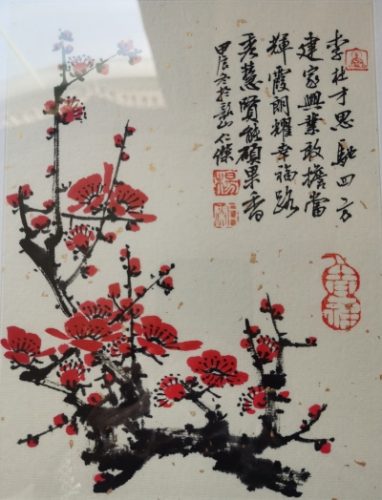 李杜才思馳四方
建家興業敢擔當
輝霞朗耀幸福路
吾慧賢能碩果香
甲辰冬於彭山仁傑
楊